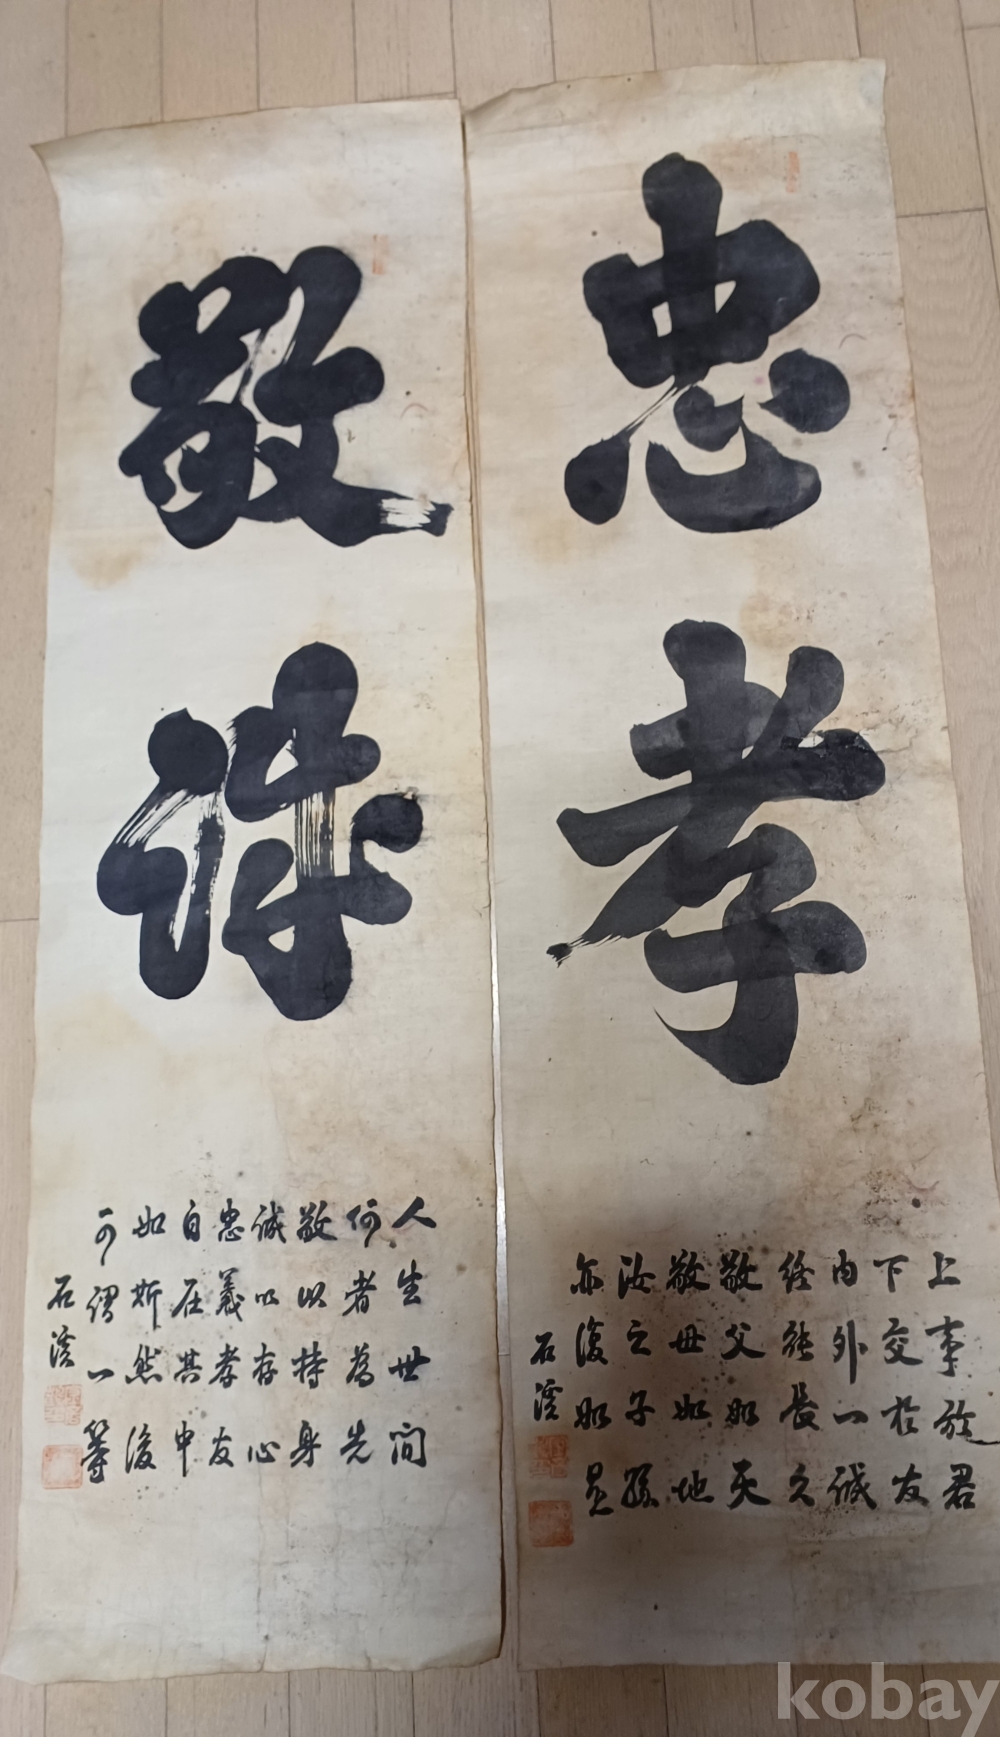 忠
孝
上事於君
下交於友
內外一誠
終能長久
敬父如天
敬母如地
汝之子孫
亦復如是
石溪
敬
誠
人生世間
何者爲先
敬以持身
誠以存心
忠義孝友
自在其中
如斯然後
可謂一等
石溪
kobay